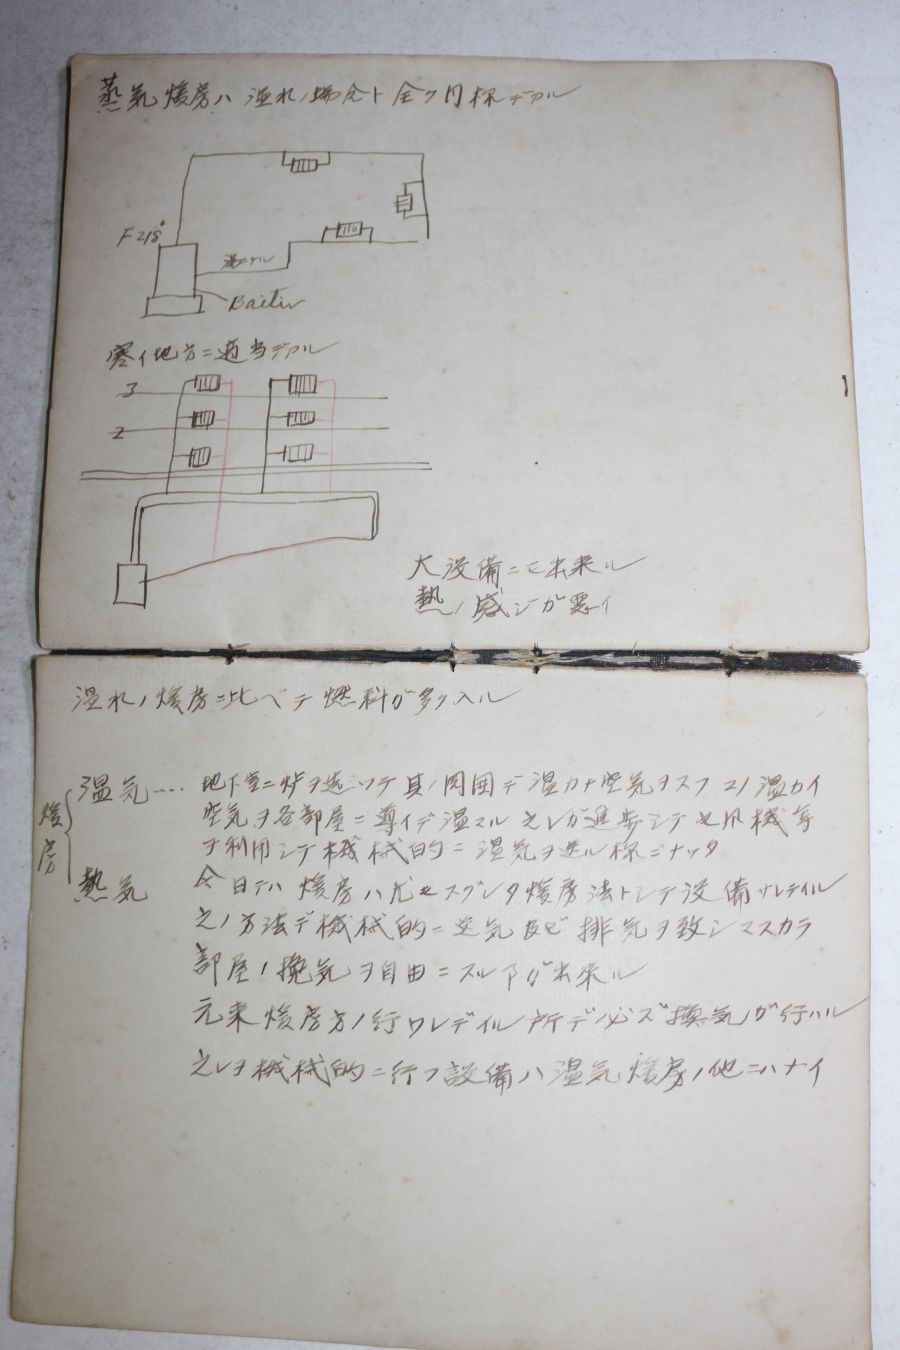 蒸気煖房ハ温水ノ場合ト全ク同様デアル
F218°
Boiler
寒イ地方ニ適当デアル
3
2
大設備ニモ出来ル
熱ノ感ジガ悪イ
温水ノ煖房ニ比ベテ燃料ガ多ク入ル
煖房
温気‥‥ 地下室ニ炉ヲ造ツテ其ノ周囲デ温カナ空気ヲ 温カイ
空気ヲ各部屋ニ導イデ温マル 之レガ進歩シテ 機等
ヲ利用シテ機械的ニ温気ヲ送ル様ニナッタ
熱気 今日デハ煖房ハ尤モスグレタ煖房法トシテ設備サレテイル
之ノ方法デ機械的ニ送気及ビ排気ヲ致シマスカラ
部屋ノ換気ヲ自由ニスルヿガ出来ル
元来煖房方ノ行ワレデイル所デ必ズ換気ガ行ハル
之レヲ機械的ニ行フ設備ハ温気煖房ノ他ニハナイ